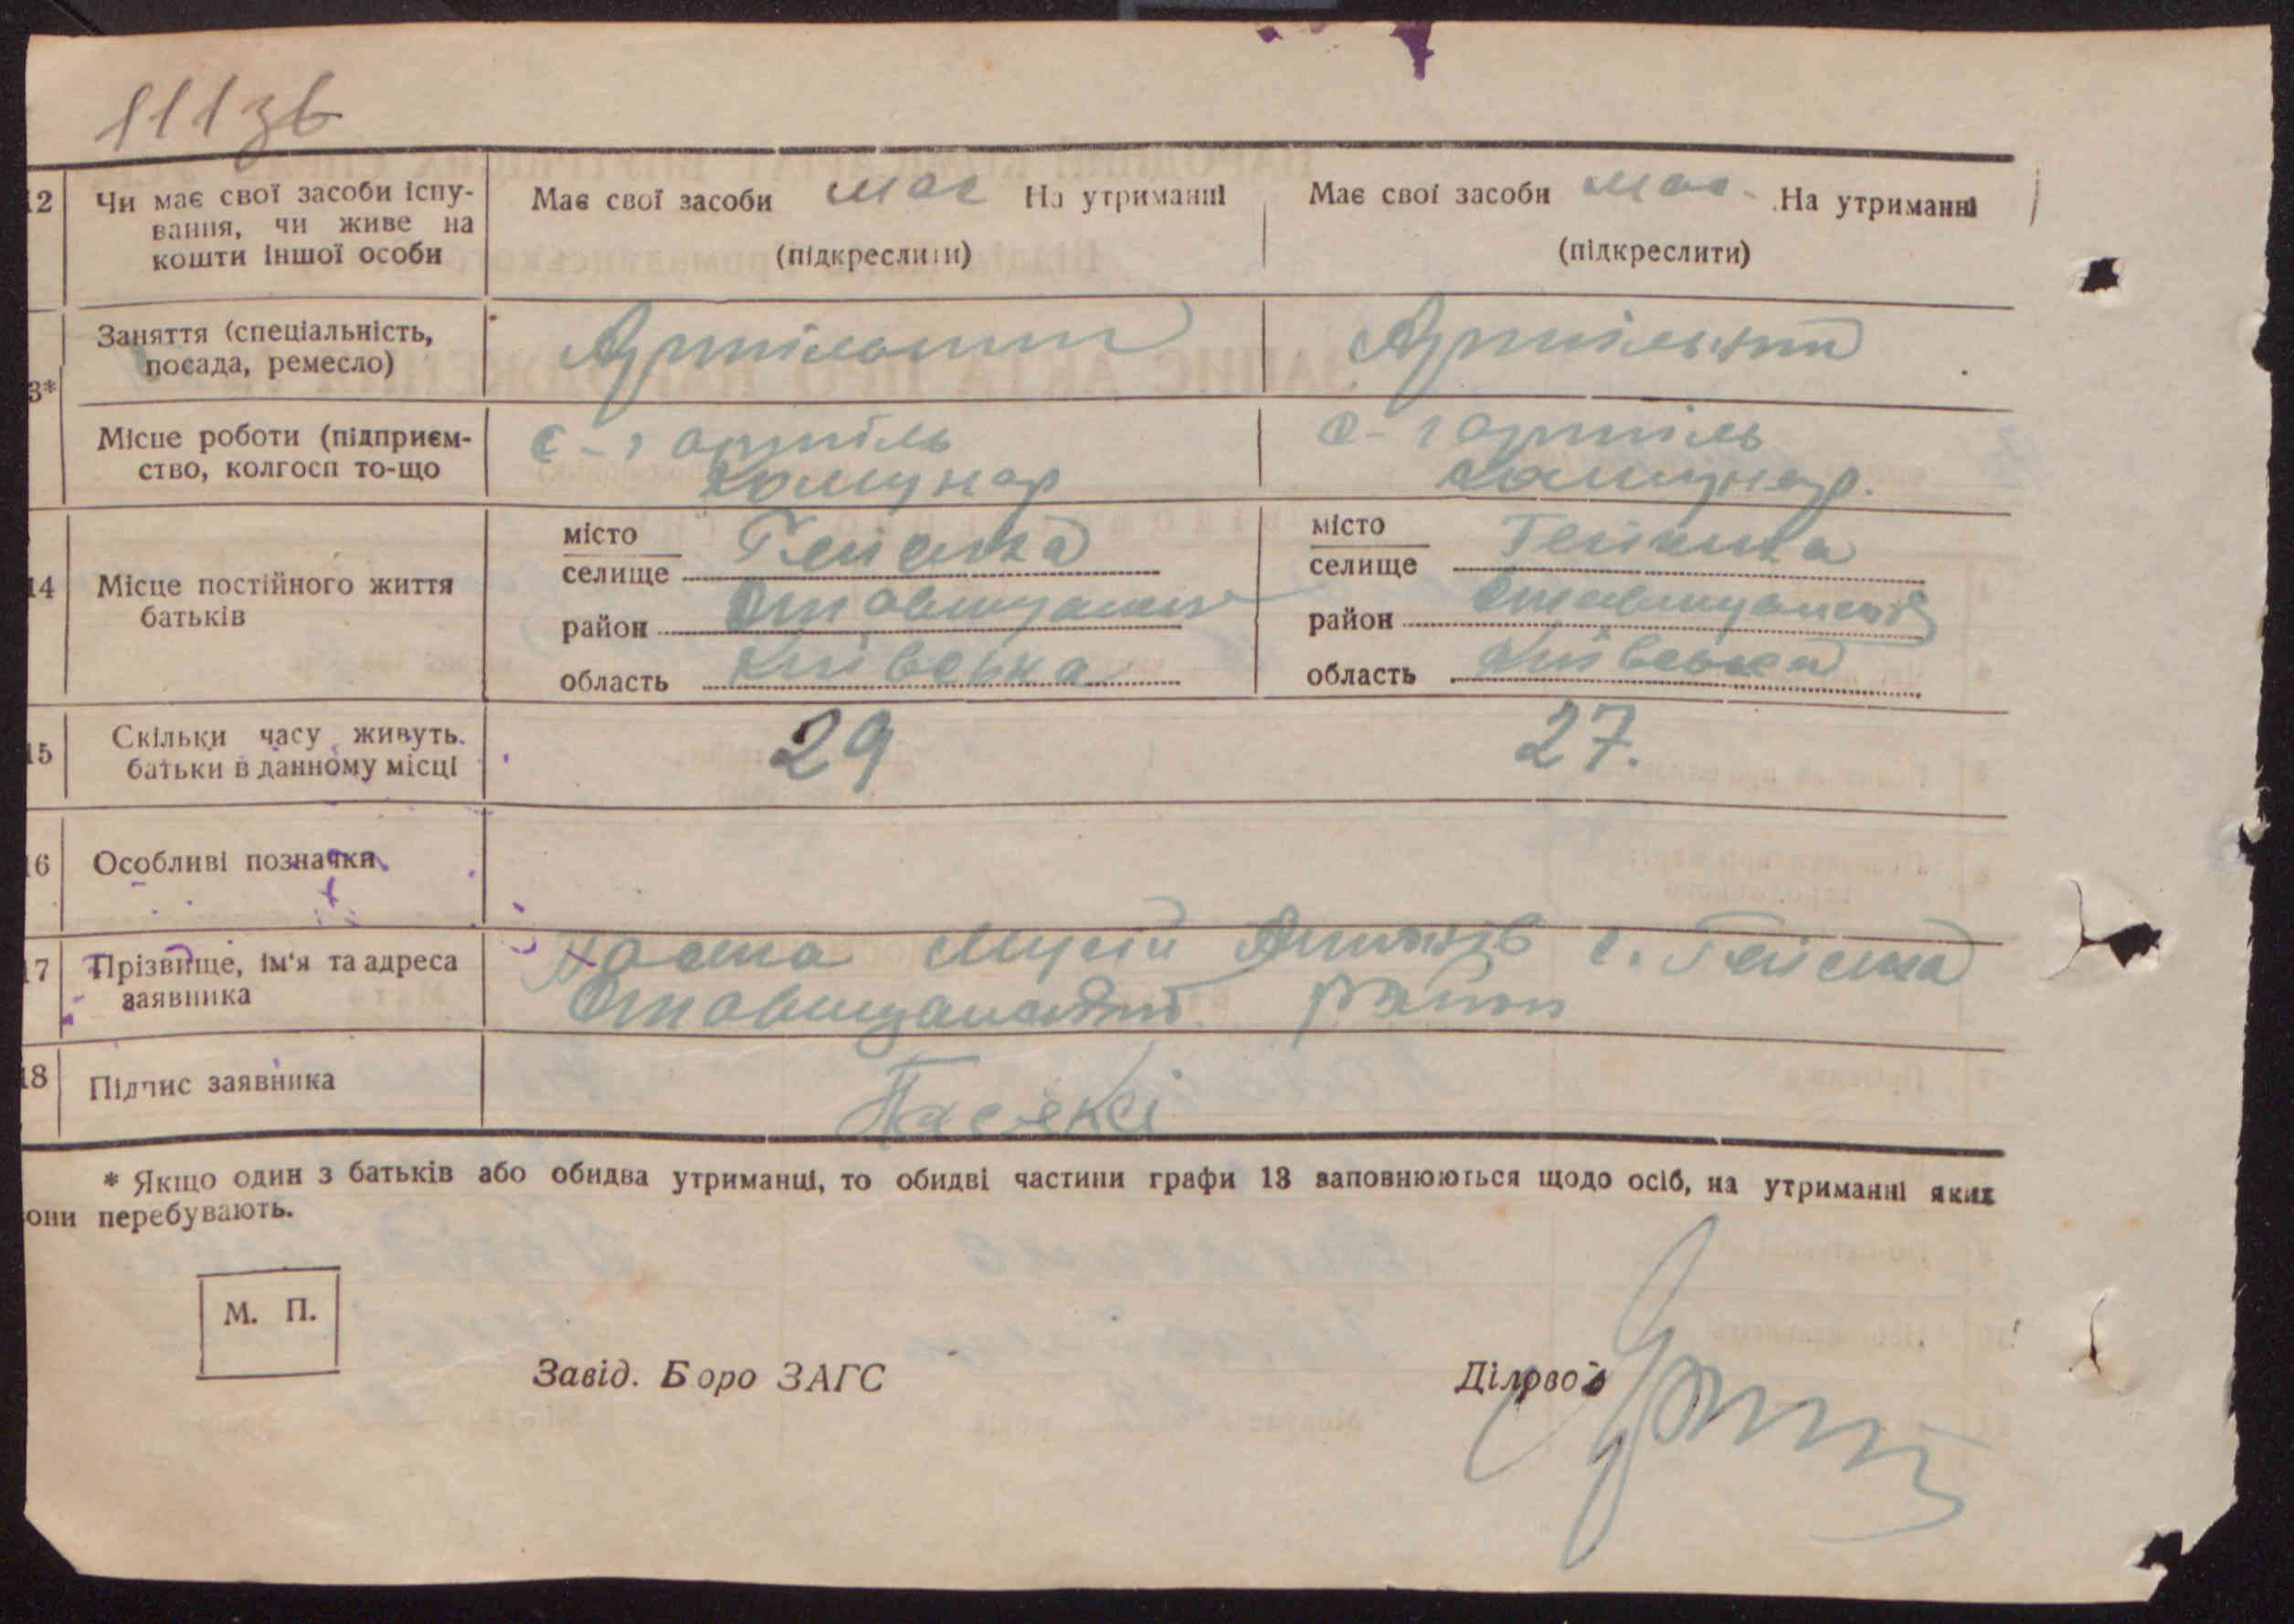 111зв
12 Чи має свої засоби існу-
вання, чи живе на
кошти іншої особи
Має свої засоби має На утриманні
(підкреслити)
Має свої засоби має На утриманні
(підкреслити)
3*
Заняття (спеціальність,
посада, ремесло)
Артільний
Артільний
Місце роботи (підприєм-
ство, колгосп то-що
с-г артіль
комунар
с-г артіль
комунар.
14 Місце постійного життя
батьків
місто
селище Гейсиха
район Ставищанськ
область Київська
місто
селище Гейсиха
район Ставищанськ
область Київська
15 Скільки часу живуть
батьки в данному місці
29
27.
16 Особливі позначки
17 Прізвище, ім'я та адреса
заявника
Мусій с.
Ставищанський район
18 Підпис заявника
* Якщо один з батьків або обидва утриманці, то обидві частини графи 13 заповнюються щодо осіб, на утриманні яких
вони перебувають.
М. П.
Завід. Бюро ЗАГС
Діловод